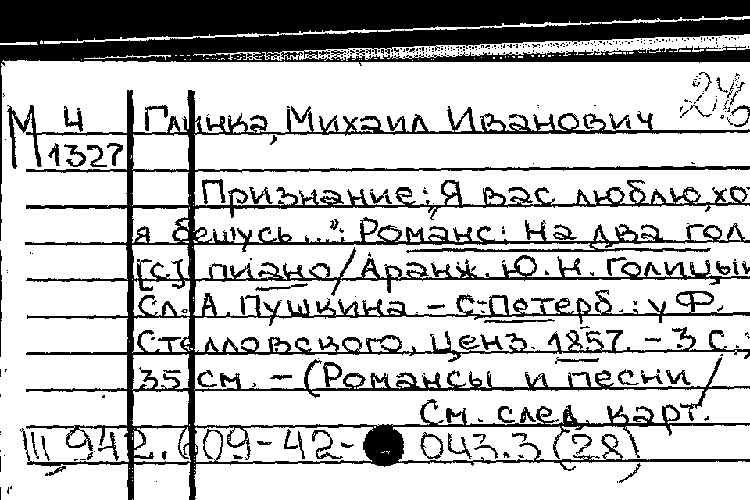 246
М 4 Глинка, Михаил Иванович
1327
Признание: "Я вас люблю, хо
я бешусь...": Романс: На два гол
[с] пиано / Аранж. Ю.Н. Голицын
Сл. А. Пушкина. - С-Петерб.: у Ф.
Стелловского, ценз. 1857. - 3 с.;
35 см. - (Романсы и песни /
См. след. карт.
Ш 942.609-42- 043.3 (28)